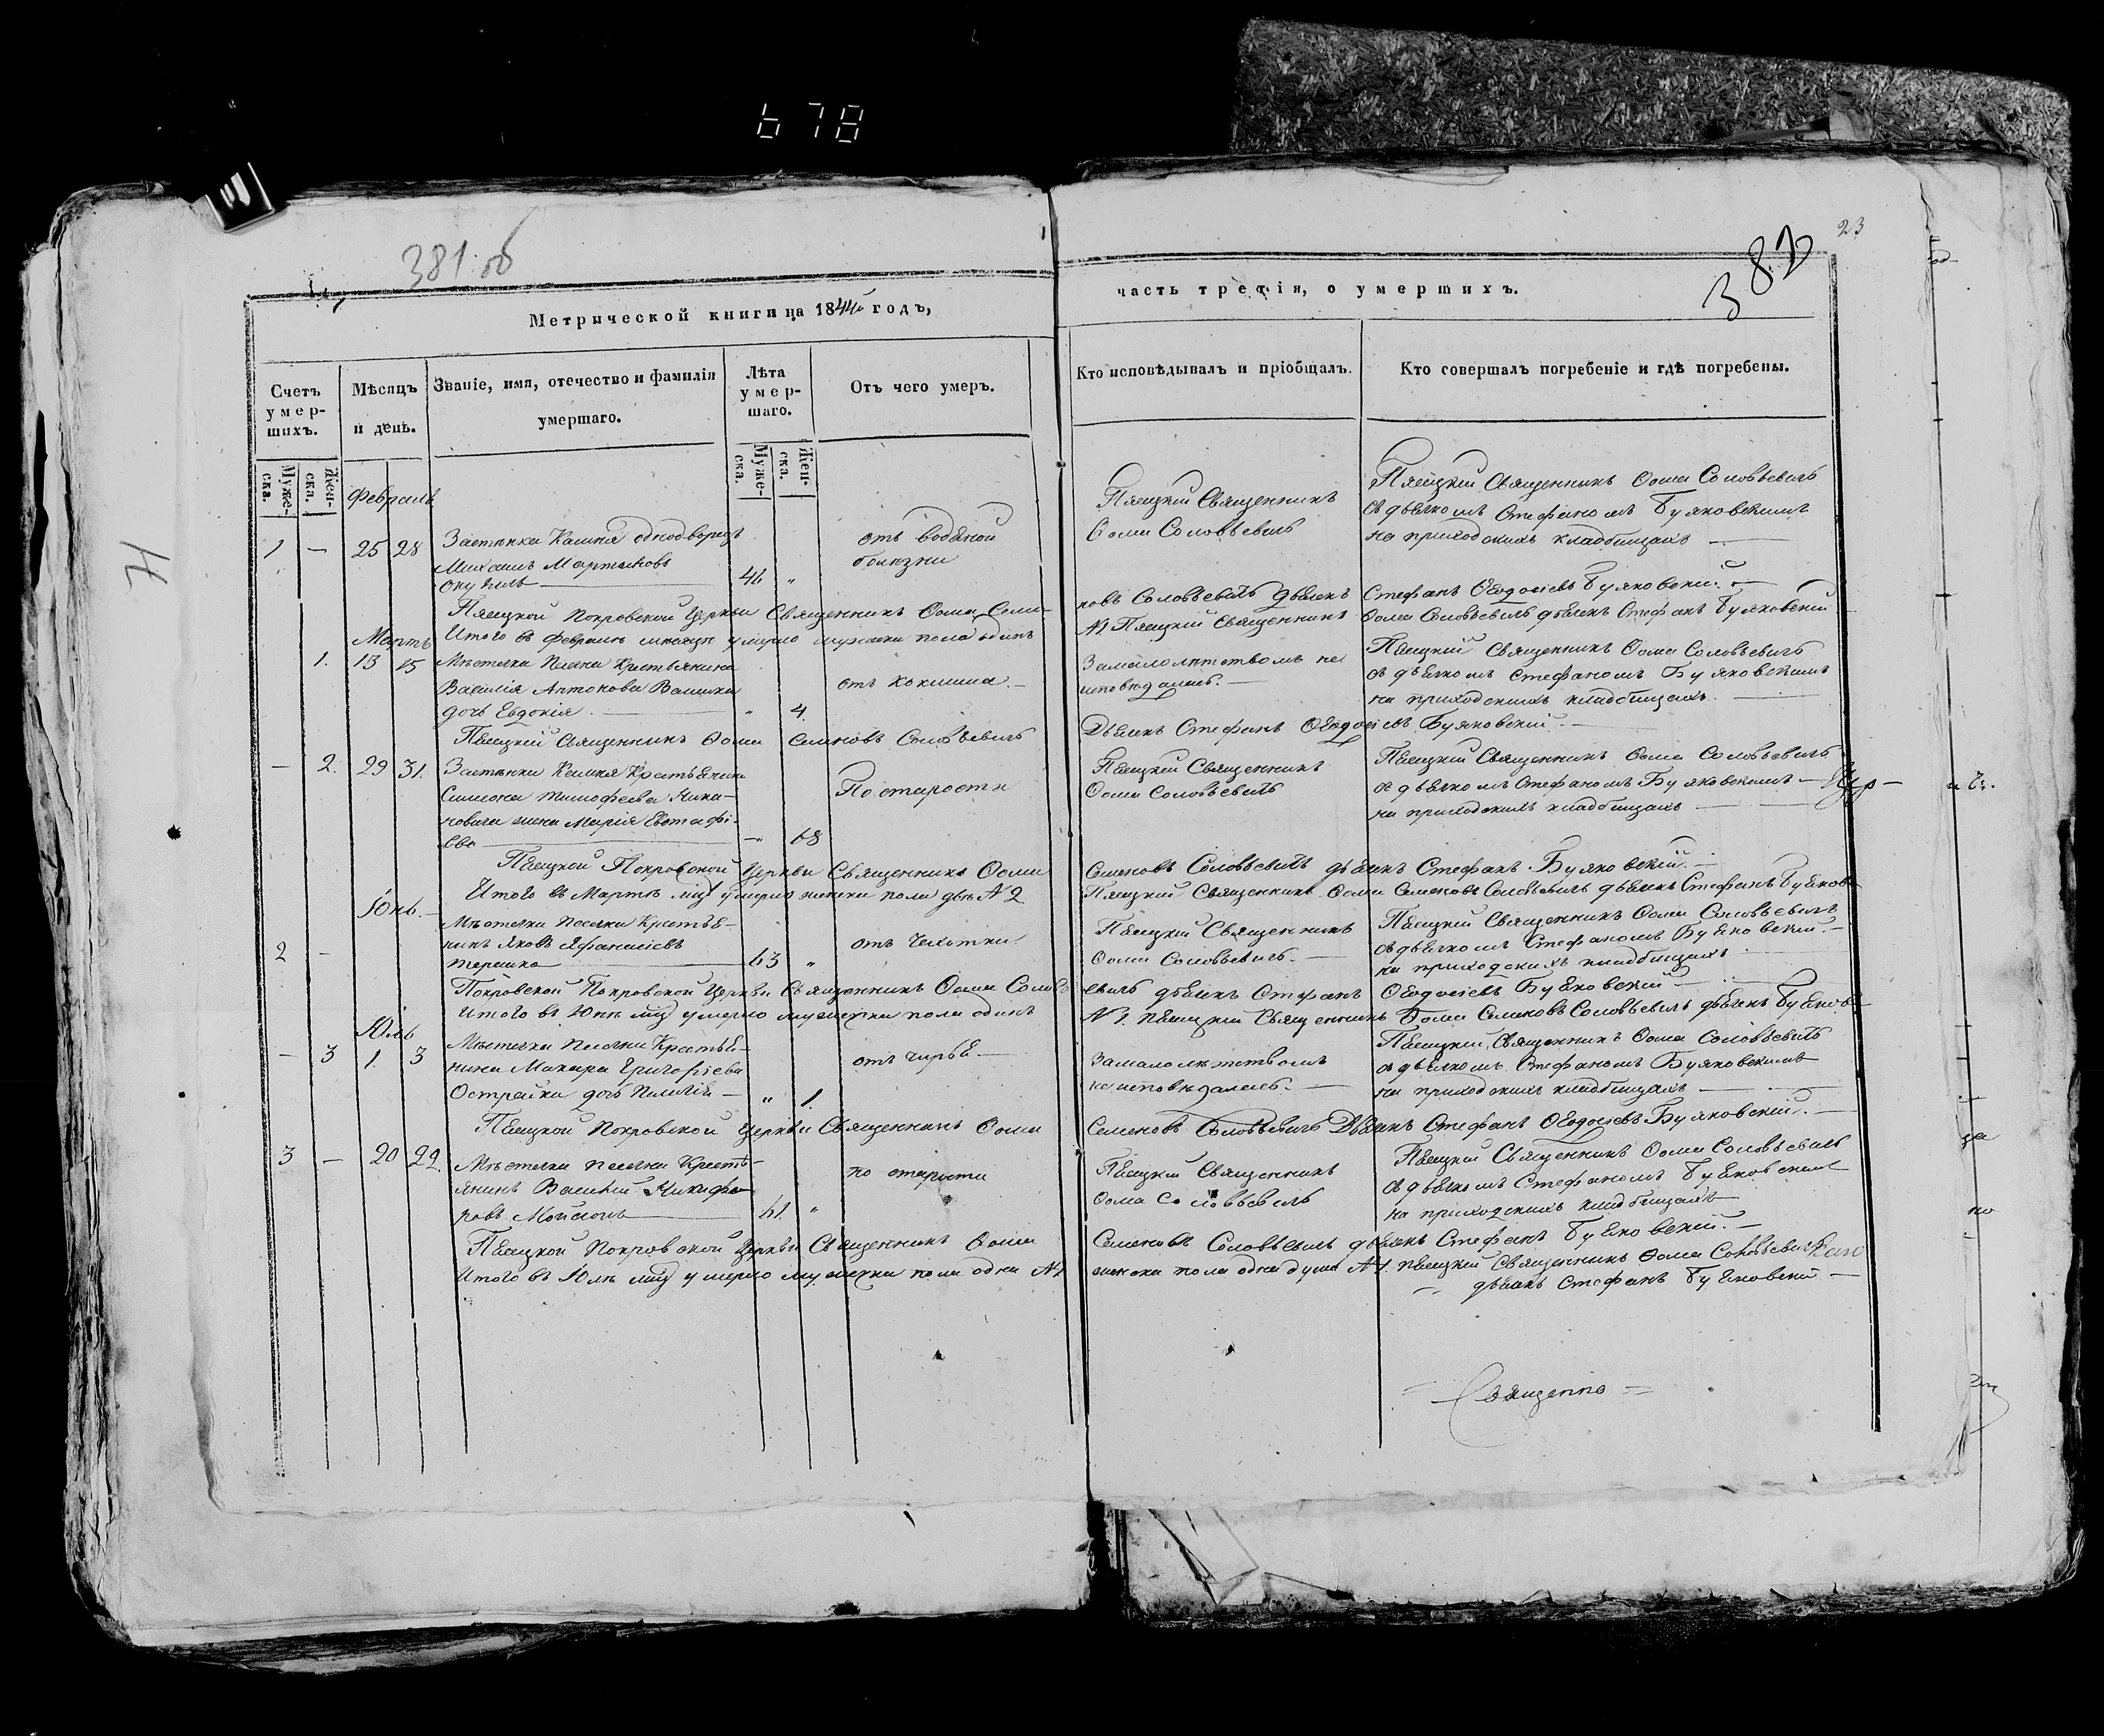 678
381 об
382
23
Метрической книги на 1844й годъ,
часть третія, о умершихъ.
Счетъ умер-шихъ.
Мѣсяцъ и день.
Званіе, имя, отечество и фамилія умершаго.
Лѣта умер-шаго.
Отъ чего умеръ.
Кто исповѣдывалъ и пріобщалъ.
Кто совершалъ погребеніе и гдѣ погребены.
Муже-ска.
Жен-ска.
Муже-ска.
Жен-ска.
Февраль
1 — 25 28
Застѣнка Камня однодворецъ
Михаилъ Мартиновъ
46 "
отъ водяной
болѣзни
Пяецкій Священникъ
Ѳома Соловьевичъ
Пяецкій Священникъ Ѳома Соловьевичъ
съ дьячкомъ Стефаномъ Буяковскимъ
на приходскихъ кладбищахъ —
Пяецкой Покровской Церкви Священникъ Ѳома Семе-
новъ Соловьевичъ дьячекъ Стефанъ Ѳеодосіевъ Буяковскій. —
Итого въ Февралѣ мѣсяцѣ умерло мужеска пола одинъ
№1 Пяецкій Священникъ Ѳома Соловьевичъ дьячекъ Стефанъ Буяковскій
Мартъ
1. 13 15
Мѣстечка Песчки Крестьянина
Василія Антонова
дочь Евдокія. —
" 4.
отъ коклюша. —
За малолѣтствомъ не
исповѣдалась. —
Пяецкій Священникъ Ѳома Соловьевичъ
съ дьячкомъ Стефаномъ Буяковскимъ
на приходскихъ кладбищахъ. —
Пяецкій Священникъ Ѳома Семеновъ Соловьевичъ
Дьячекъ Стефанъ Ѳеодосіевъ Буяковскій. —
— 2. 29 31.
Застѣнка Камня Крестьянина
Симеона Тимофеева Жика-
новича жена Марія Евстафі-
ева —
— 68
По старости
Пяецкій Священникъ
Ѳома Соловьевичъ
Пяецкій Священникъ Ѳома Соловьевичъ
съ дьячкомъ Стефаномъ Буяковскимъ —
на приходскихъ кладбищахъ —
Пяецкой Покровской Церкви Священникъ Ѳома
Семеновъ Соловьевичъ дьячекъ Стефанъ Буяковскій. —
Итого въ Мартѣ мцѣ умерло женска пола двѣ №2
Пяецкій Священникъ Ѳома Семеновъ Соловьевичъ дьячекъ Стефанъ Буяков
Юнь. —
2 —
Мѣстечка Песчки Крестья-
нинъ Яковъ Афанасіевъ
Терешко —
63 "
отъ чахотки
Пяецкій Священникъ
Ѳома Соловьевичъ. —
Пяецкій Священникъ Ѳома Соловьевичъ
съ дьячкомъ Стефаномъ Буяковскій. —
на приходскихъ кладбищахъ
Покровской Покровской Церкви Священникъ Ѳома Соловь
евичъ дьячекъ Стефанъ Ѳеодосіевъ Буяковскій —
Итого въ Юнѣ мцѣ умерло мужеска пола одинъ
№1. Пяецкій Священникъ Ѳома Семеновъ Соловьевичъ дьячекъ Буяков
Юль
— 3 1. 3
Мѣстечка Песчки Крестья-
нина Макара Григоріева
Острейка дочь Пелагія —
" 1.
отъ чирья —
За малолѣтствомъ
не исповѣдалась. —
Пяецкій Священникъ Ѳома Соловьевичъ
съ дьячкомъ Стефаномъ Буяковскимъ
на приходскихъ кладбищахъ —
Пяецкой Покровской Церкви Священникъ Ѳома
Семеновъ Соловьевичъ Дьячекъ Стефанъ Ѳеодосіевъ Буяковскій. —
3 — 20 22
Мѣстечка Песчки Кресть-
янинъ Василій Никифо-
ровъ
61. "
по старости
Пяецкій Священникъ
Ѳома Соловьевичъ
Пяецкій Священникъ Ѳома Соловьевичъ
съ дьячкомъ Стефаномъ Буяковскимъ
на приходскихъ кладбищахъ —
Пяецкой Покровской Церкви Священникъ Ѳома
Семеновъ Соловьевичъ дьячекъ Стефанъ Буяковскій. —
Итого въ Юлѣ мцѣ умерло мужеска пола одна №1
женска пола одна душа №1. Пяецкій Священникъ Ѳома Соловьевичъ
— дьячекъ Стефанъ Буяковскій —
— Священно —